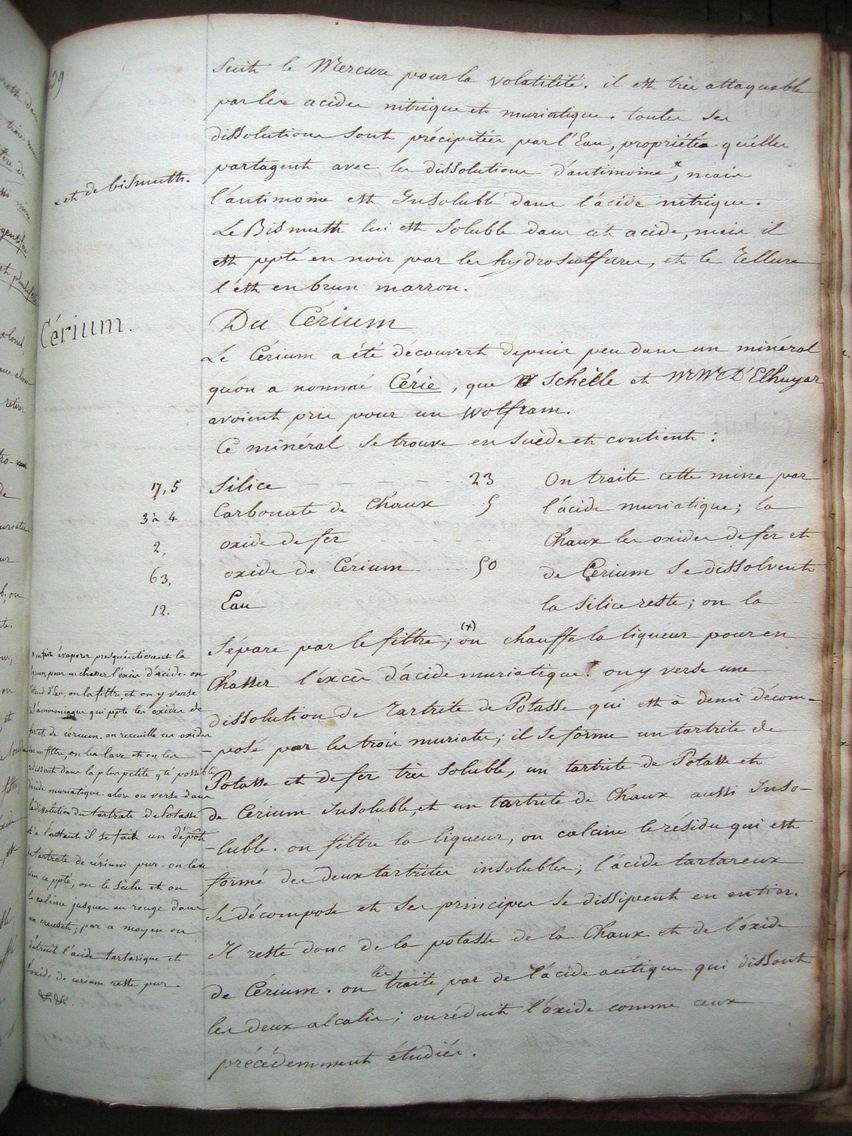 suit le Mercure pour la volatilité. il est très attaquable
par les acides nitrique et muriatique. toutes ses
dissolutions sont précipitées par l'Eau, propriétés qu'elles
partagent avec les dissolutions d'antimoine x, mais
x et de bismuth.
l'antimoine est Insoluble dans l'acide nitrique.
Le Bismuth lui est soluble dans cet acide, mais il
est ppté en noir par les hydrosulfures, et le Tellure
l'est en brun marron.
Cérium.
Du Cérium
Le Cérium a été découvert depuis peu dans un minéral
qu'on a nommé Cérie, que Schéele et MrMrs D'Elhuyar
avoient pris pour un Wolfram.
Ce minéral se trouve en Suède et contient :
17,5 Silice 23 On traite cette mine par
3 à 4 Carbonate de Chaux 5 l'acide muriatique ; la
2, oxide de fer Chaux les oxides de fer et
63, oxide de Cérium 50 de Cérium se dissolvent
12. Eau la silice reste ; on la
sépare par le filtre ; (x) on chauffe la liqueur pour en
chasser l'excès d'acide muriatique. on y verse une
dissolution de Tartrite de Potasse qui est à demi décom-
-posé par les trois muriates ; il se forme un tartrite de
Potasse et de fer très soluble, un tartrite de Potasse et
de Cérium Insoluble, et un tartrite de Chaux aussi Inso-
-luble. on filtre la liqueur, on calcine le résidu qui est
formé des deux tartrites insolubles ; l'acide tartareux
se décompose et ses principes se dissipent en entier.
Il reste donc de la potasse de la Chaux et de l'oxide
de Cérium. on le traite par de l'acide acétique qui dissout
les deux alcalis ; on réduit l'oxide comme ceux
précédemment étudiés.
évaporer presqu'entièrement la
pour en chasser l'excès d'acide. on
d'Eau, on la filtre et on y verse
l'ammoniaque qui ppte les oxides de
fer et de cérium. on recueille ces oxides
filtre, on les lave et on les
dissout dans la plus petite qté possible
d'acide muriatique alors on verse dans
la dissolution du tartrate de Potasse
et à l'instant il se fait un dépôt
de tartrate de cérium pur. on lave
ce ppté, on le sèche et on
le calcine jusques au rouge dans
un creuset ; par ce moyen on
détruit l'acide tartarique et
l'oxide de cérium reste pur.